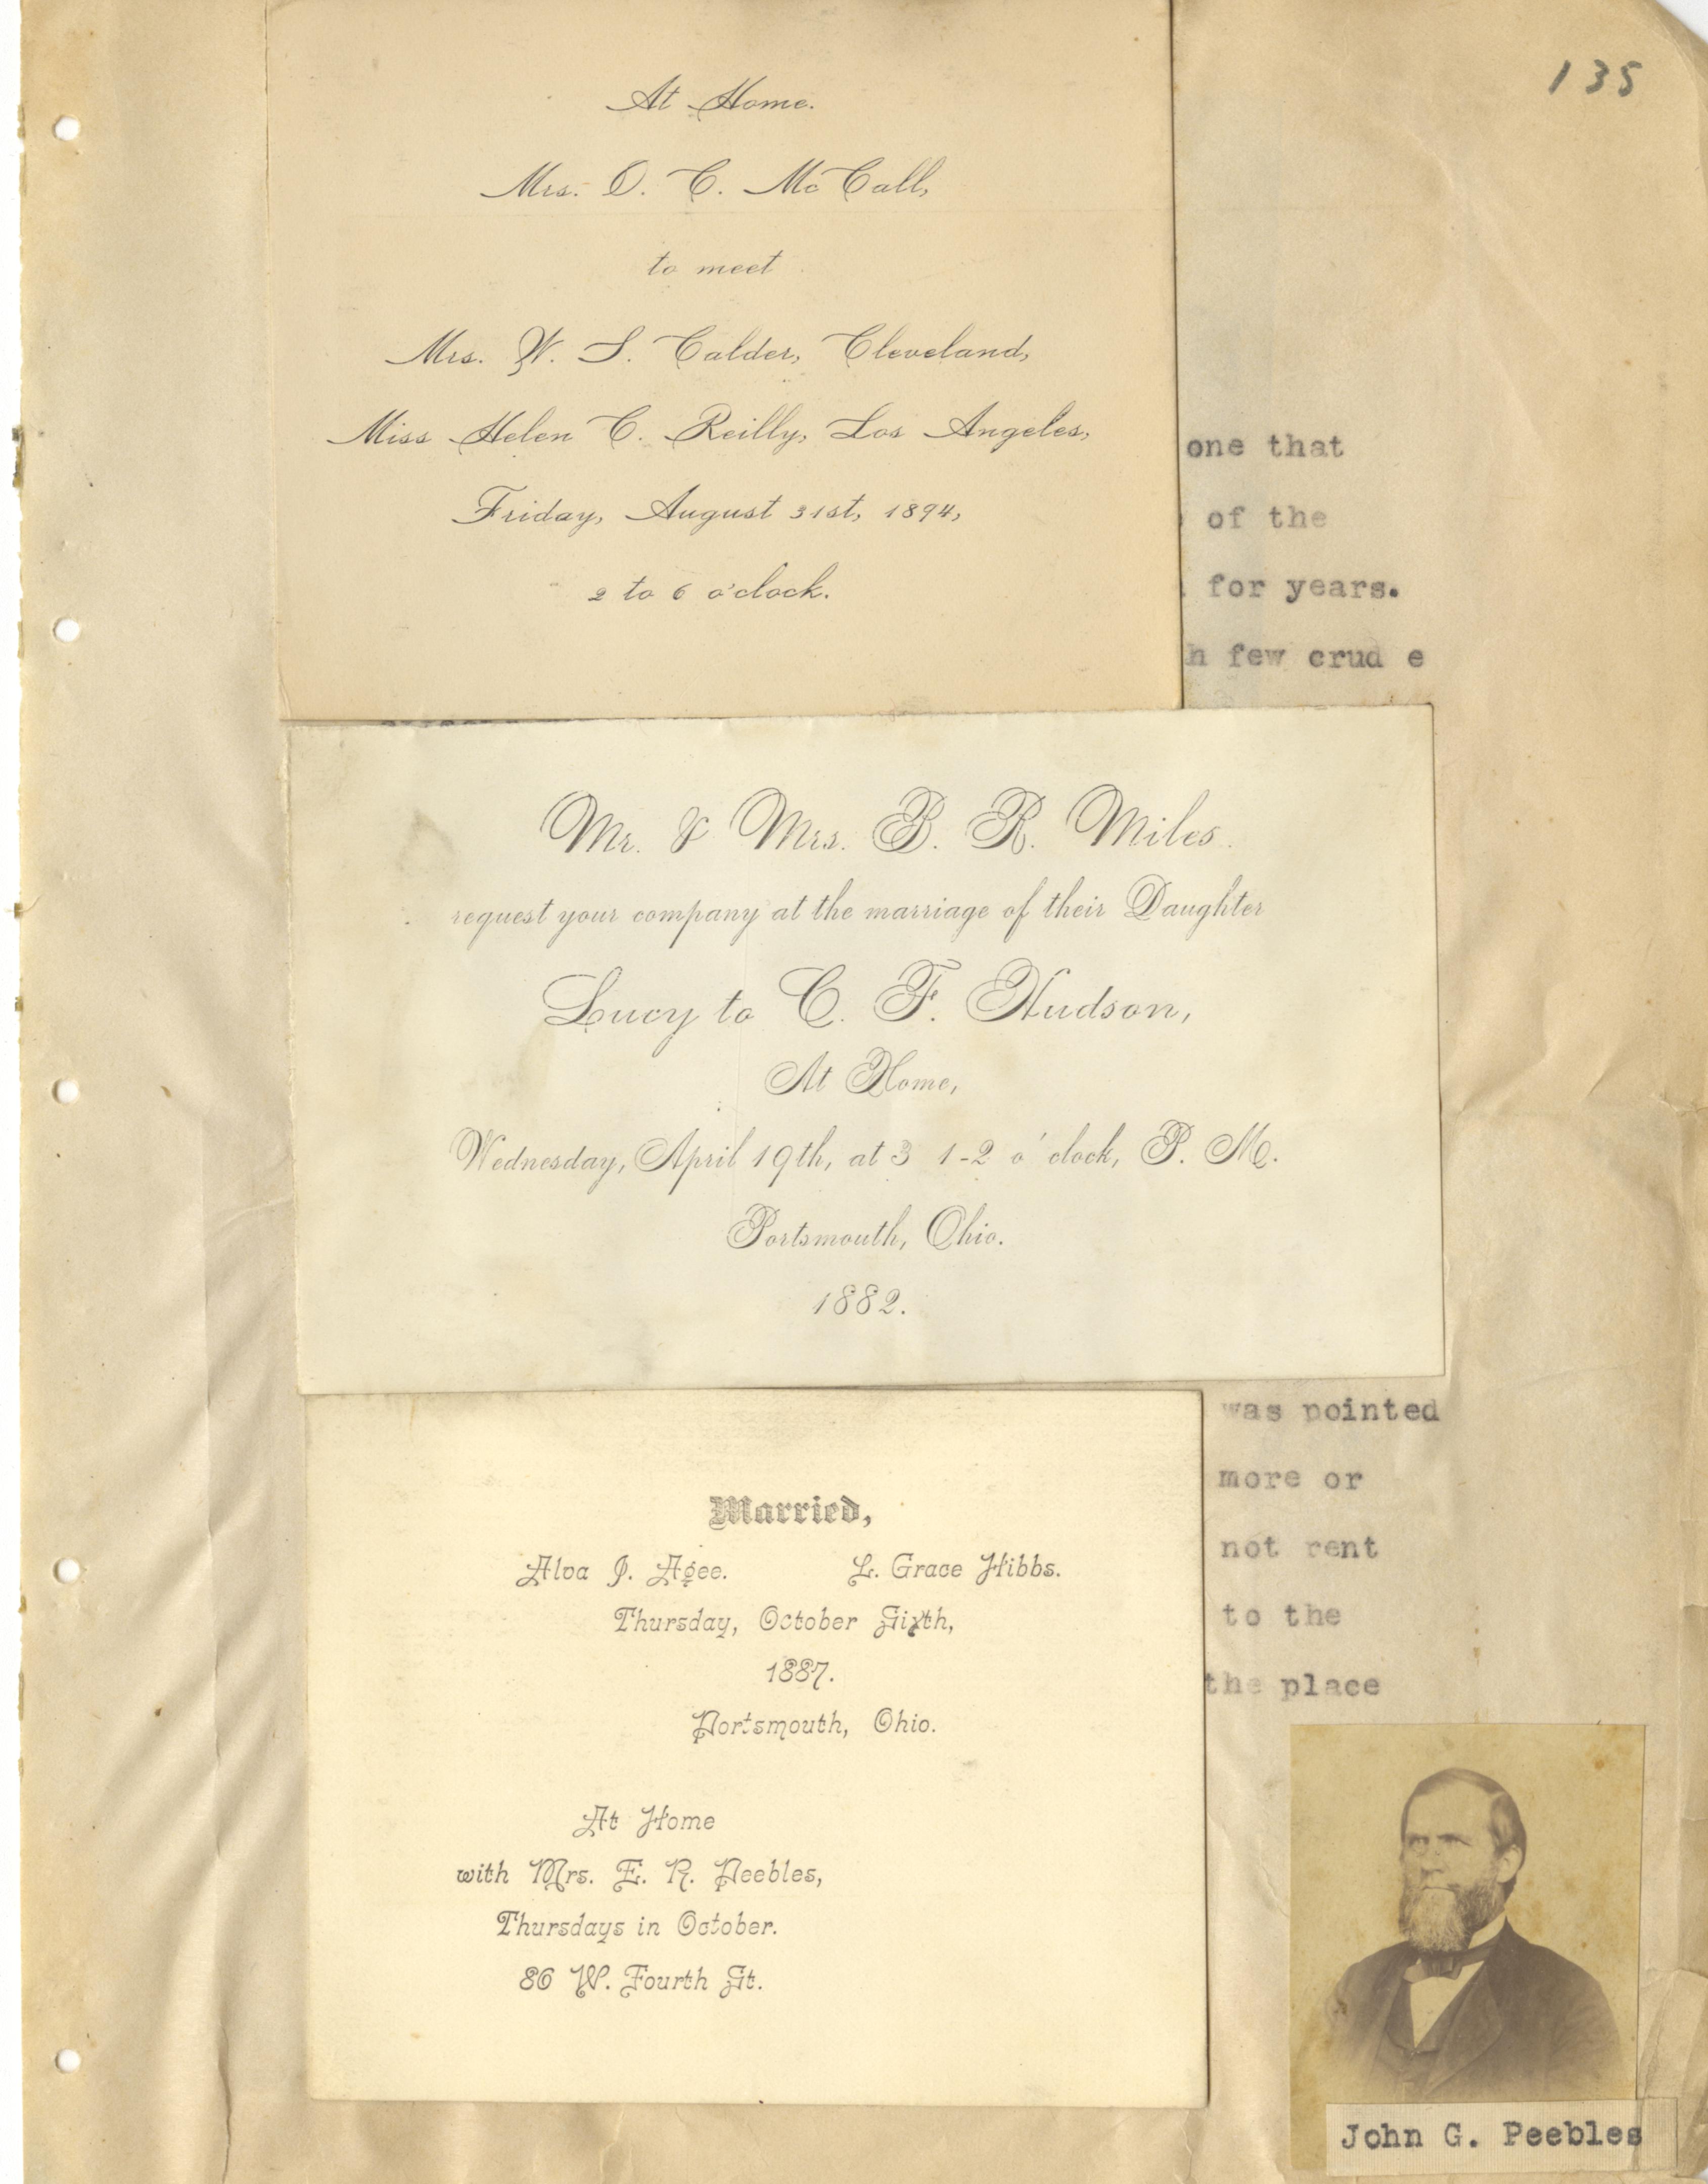 135
At Home.
Mrs. O. C. McCall,
to meet
Mrs. W. S. Calder, Cleveland,
Miss Helen C. Reilly, Los Angeles,
Friday, August 31st, 1894,
2 to 6 o'clock.
one that
of the
for years.
few crud e
Mr. & Mrs. B. R. Miles.
request your company at the marriage of their Daughter
Lucy to C. F. Hudson,
At Home,
Wednesday, April 19th, at 3 1-2 o'clock, P. M.
Portsmouth, Ohio.
1882.
was pointed
more or
not rent
to the
the place
Married,
Alva J. Agee. L. Grace Hibbs.
Thursday, October Sixth,
1887.
Portsmouth, Ohio.
At Home
with Mrs. E. R. Peebles,
Thursdays in October.
86 W. Fourth St.
John G. Peebles